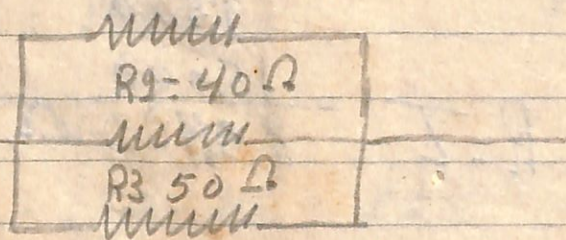 R2= 40 Ω
R3 50 Ω